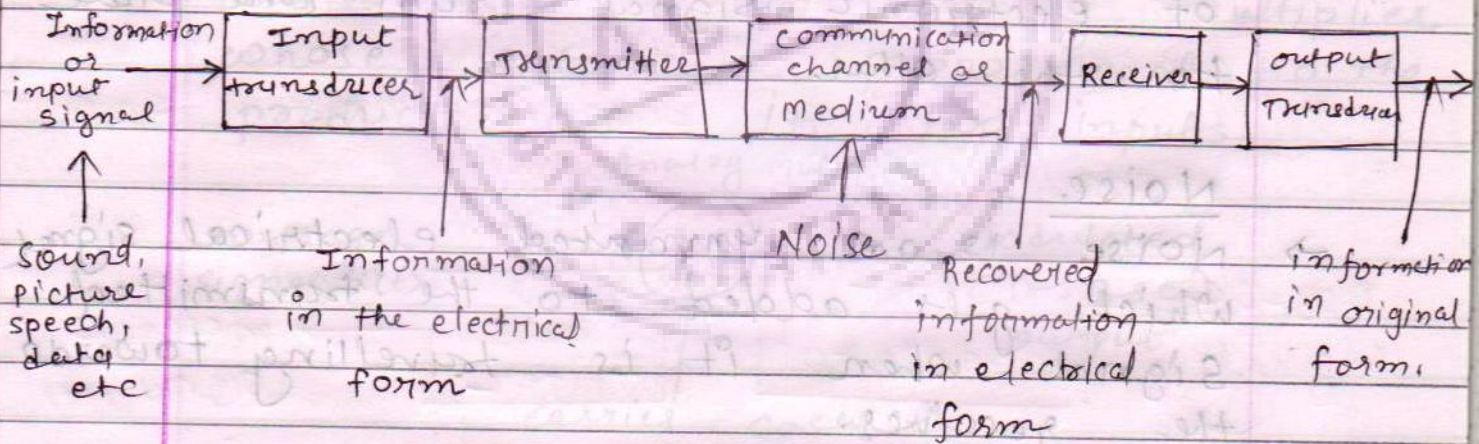 Information
or
input
signal
Input
transducer
Transmitter
communication
channel or
Medium
Receiver
output
Transducer
Sound,
picture
speech,
data
etc
Information
in the electrical
form
Noise
Recovered
information
in electrical
form
information
in original
form.